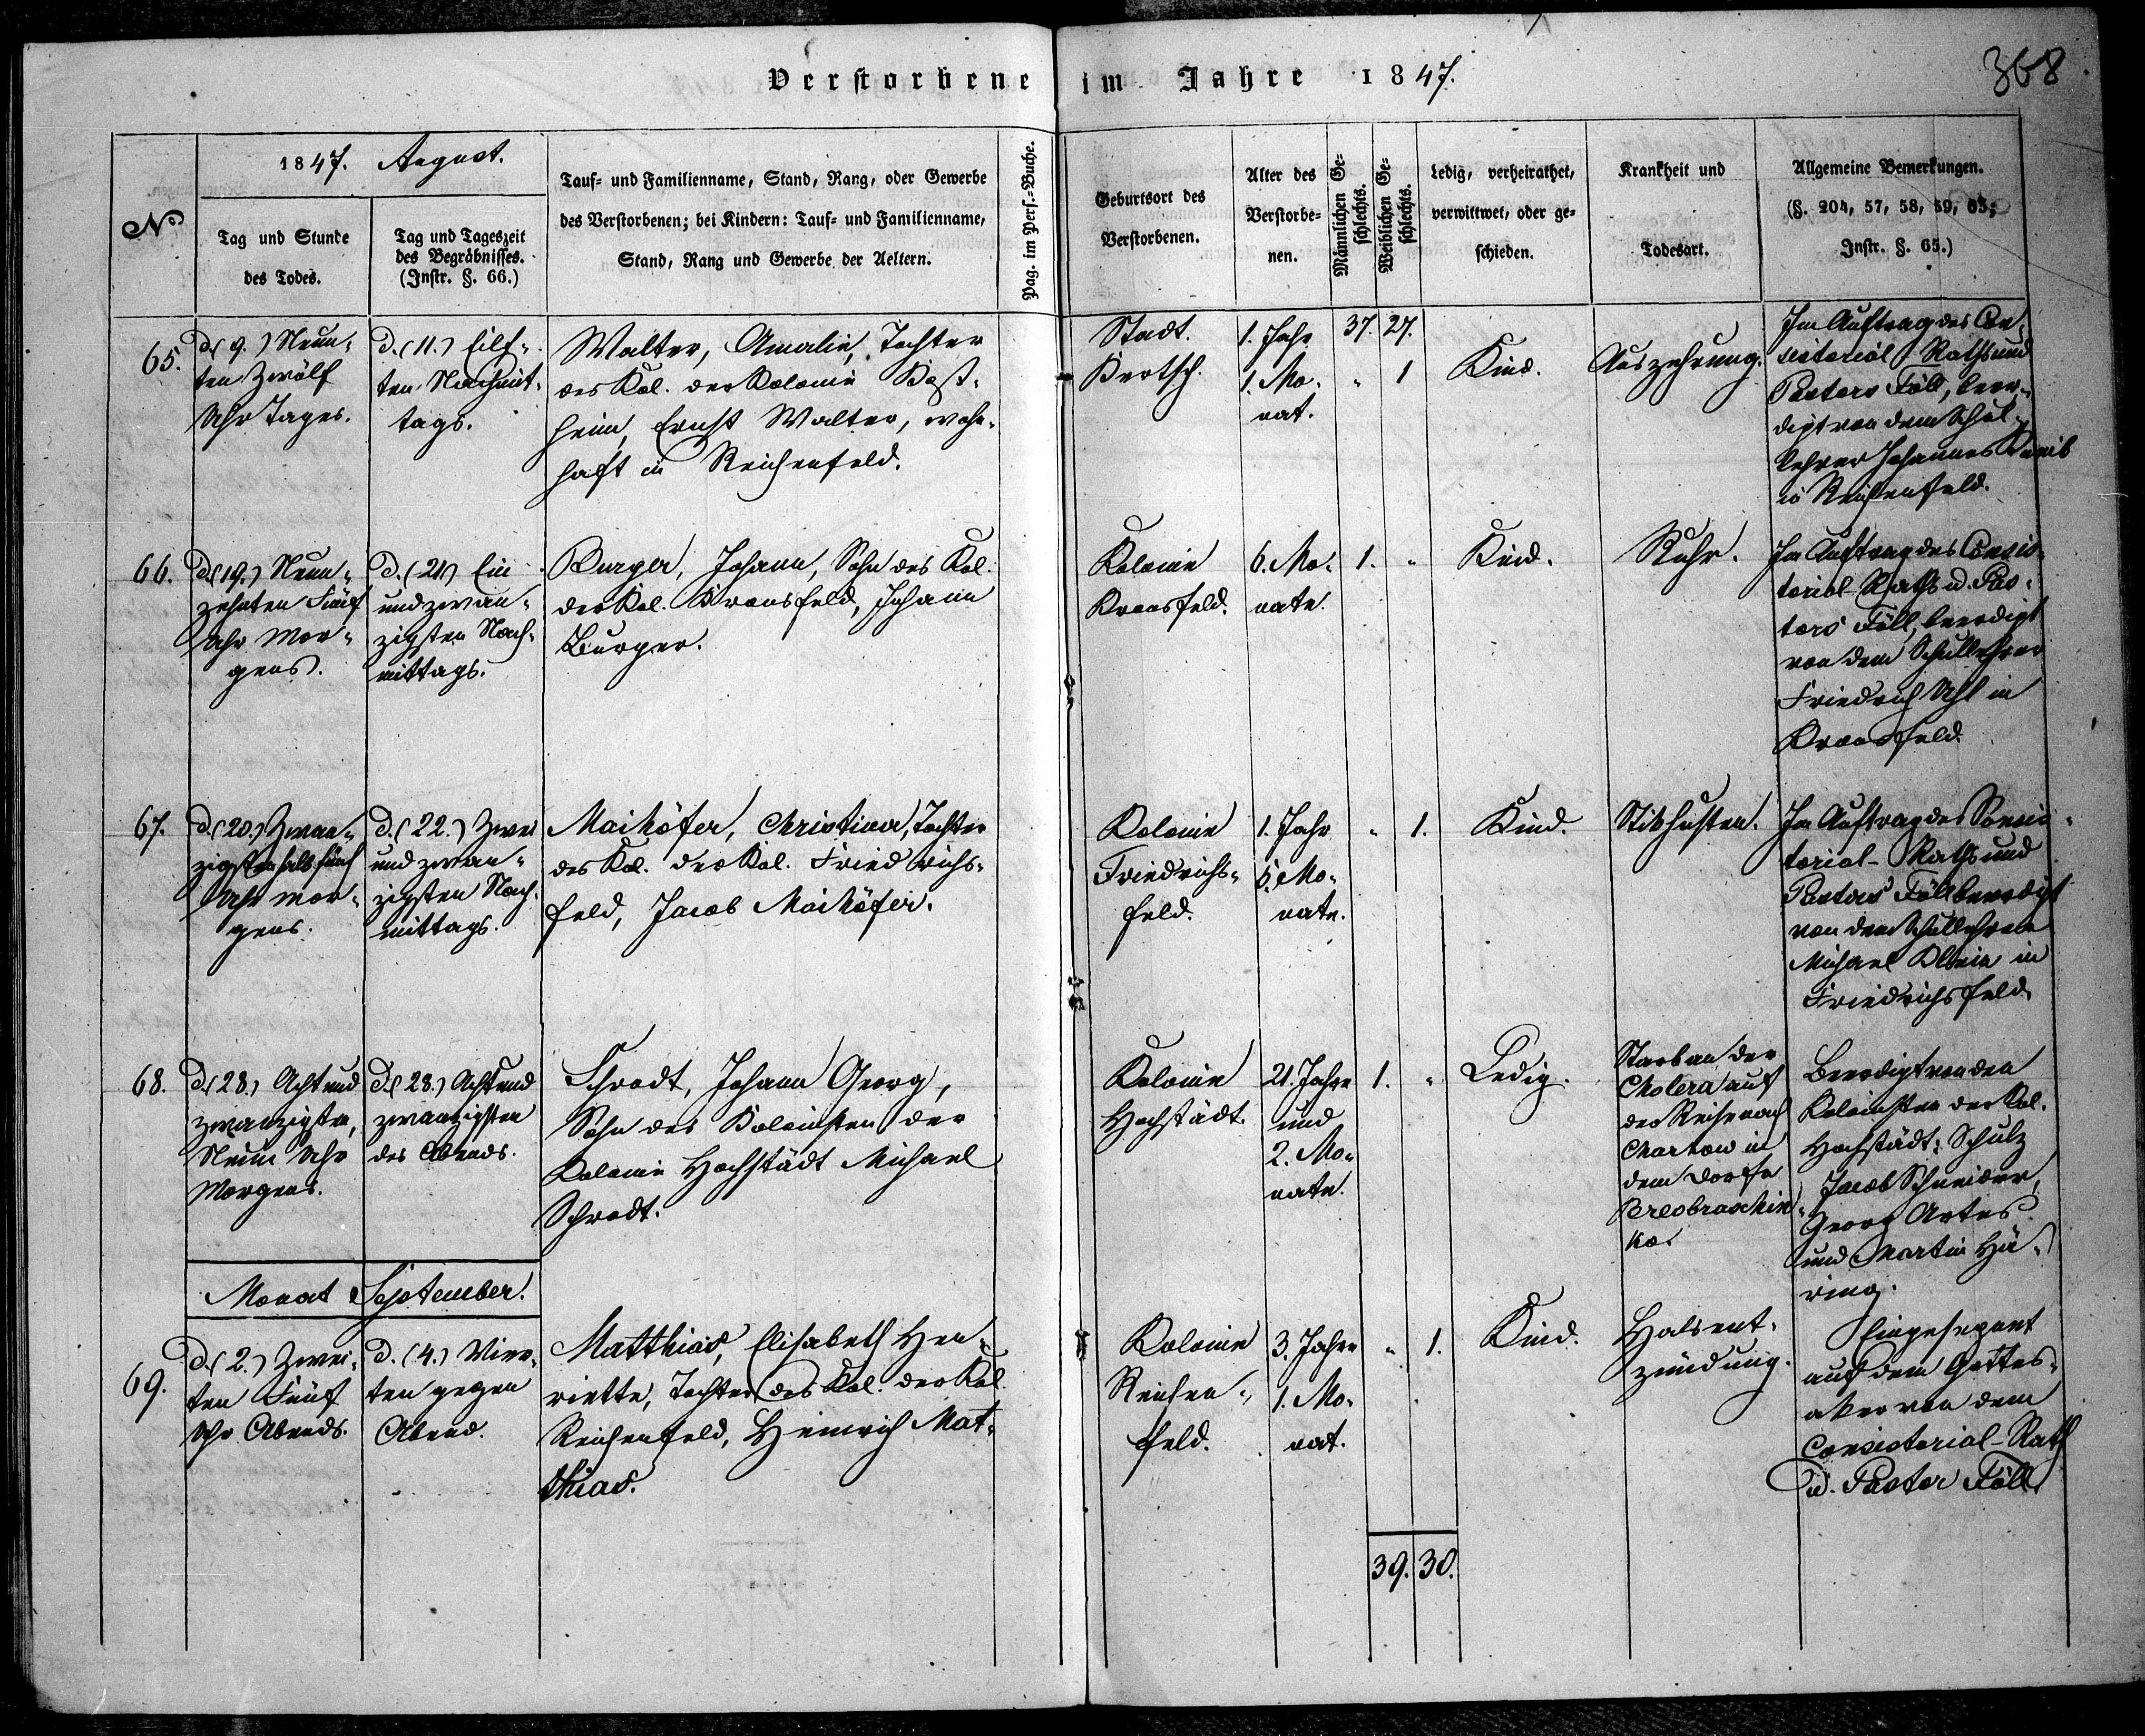 368
Verstorbene im Jahre 1847.
№
1847. August.
Tag und Stunde
des Todes.
Tag und Tageszeit
des Begräbnisses.
(Instr. §. 66.)
Tauf- und Familienname, Stand, Rang, oder Gewerbe
des Verstorbenen; bei Kindern: Tauf- und Familienname,
Stand, Rang und Gewerbe der Aeltern.
Pag. im Pers.-Buche.
Geburtsort des
Verstorbenen.
Alter des
Verstorbe-
nen.
Männlichen Ge-
schlechts.
Weiblichen Ge-
schlechts.
Ledig, verheirathet,
verwittwet, oder ge-
schieden.
Krankheit und
Todesart.
Allgemeine Bemerkungen.
(§. 204, 57, 58, 59, 65;
Instr. §. 65.)
65.
d. (9.) Neun-
ten Zwölf
Uhr Tages.
d. (11.) Eilf-
ten Nachmit-
tags.
Walter, Amalie, Tochter
des Kol. der Kolonie Kost-
heim, Ernst Walter, wohn-
haft in Reichenfeld.
Stadt.
Kertsch.
1. Jahr
1. Mo-
nat.
37. 27.
" 1
Kind.
Auszehrung.
Im Auftrag des Con-
sistorial Raths und
Pastors Föll, beer-
digt von dem Schul-
lehrer Johannes
in Reichenfeld.
66.
d. (19.) Neun-
zehnten Fünf
Uhr Mor-
gens.
d. (21.) Ein
und zwan-
zigsten Nach-
mittags.
Burger, Johann, Sohn des Kol.
der Kol. Kronsfeld, Johann
Burger.
Kolonie
Kronsfeld.
6. Mo-
nate.
1. "
Kind.
Ruhr.
Im Auftrag des Consis-
torial-Raths u. Pas-
tors Föll, beerdigt
von dem Schullehrer
Friedrich Uhl in
Kronsfeld.
67.
d. (20.) Zwan-
zigsten halb fünf
Uhr Mor-
gens.
d. (22.) Zwei
und zwan-
zigsten Nach-
mittags.
Maihöfer, Christina, Tochter
des Kol. der Kol. Friedrichs-
feld, Jacob Maihöfer.
Kolonie
Friedrichs-
feld.
1. Jahr
Mo-
nate.
" 1.
Kind.
Stikhusten.
Im Auftrag des Consis-
torial-Raths und
Pastors Föll beerdigt
von dem Schullehrer
Michael Klein in
Friedrichsfeld.
68.
d. (28.) Acht und
zwanzigsten,
Neun Uhr
Morgens.
d. (28.) Acht und
zwanzigsten
des Abends.
Schrodt, Johann Georg,
Sohn des Kolonisten der
Kolonie Hochstädt Michael
Schrodt.
Kolonie
Hochstädt.
21. Jahre
und
2. Mo-
nate.
1. "
Ledig.
Starb an der
Cholera auf
der Reise nach
Charkow in
dem Dorfe
Preobraschin-
ka.
Beerdigt von den
Kolonisten der Kol.
Hochstädt: Schulz
Jacob Schneider,
Georg Artes
und Martin Hä-
ring.
Monat September.
69.
d. (2.) Zwei-
ten Fünf
Uhr Abends.
d. (4.) Vier-
ten gegen
Abend.
Matthias, Elisabeth Hen-
riette, Tochter des Kol. der Kol.
Reichenfeld, Heinrich Mat-
thias.
Kolonie
Reichen-
feld.
3. Jahre
1. Mo-
nat.
" 1.
Kind.
Halsent-
zündung.
Eingesegnet
auf dem Gottes-
aker von dem
Consistorial-Rath
u. Pastor Föll.
39. 30.